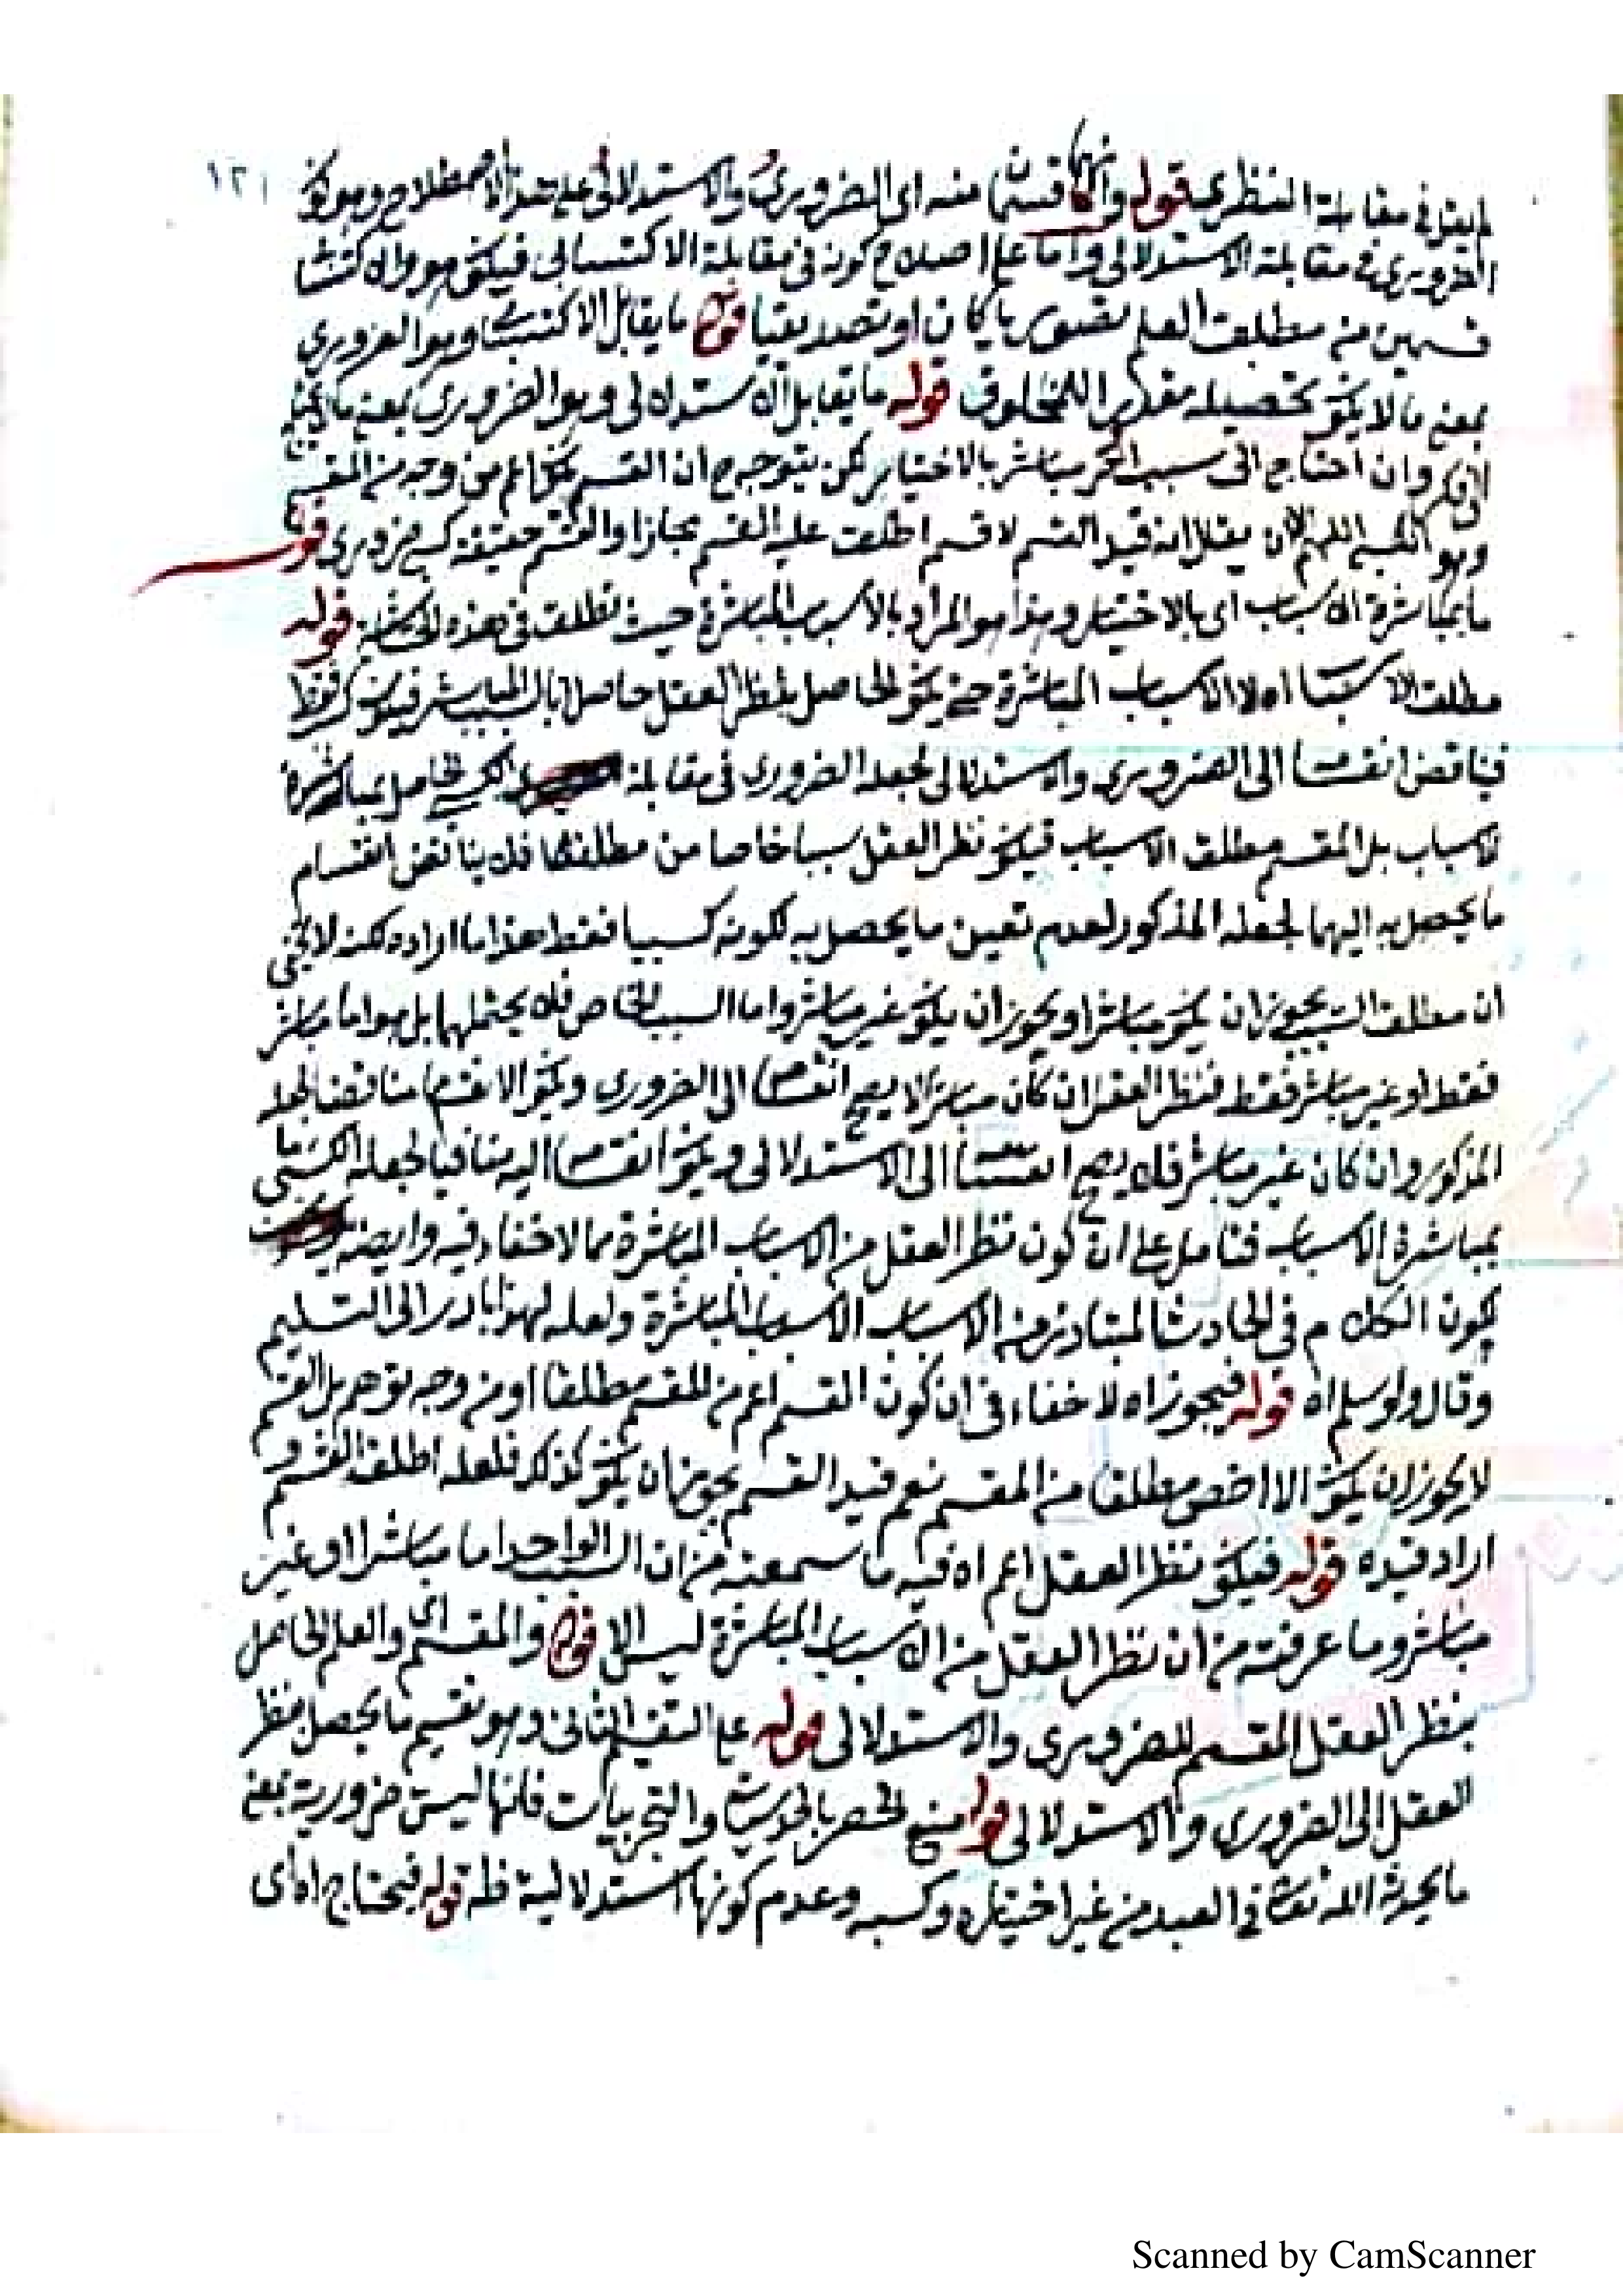 ١٢١
في مقابلة النظري قوله وانهما قسمان منه اى الضرورى والاستدلالى على هذا الاصطلاح وهو كون
الضرورى في مقابلة الاستدلالى واما على اصطلاح كونه فى مقابلة الاكتسابى فيكون هو والاكتسابى
قسمين من مطلق العلم تصوريا كان او تصديقيا قوله ما يقابل الاكتسابى وهو الضرورى
بمعنى ما لا يكون تحصيله مقدورا للمخلوق قوله ما يقابل الاستدلالى وهو الضرورى بمعنى ما
وان احتاج الى سبب اخر مباشر بالاختيار لكن يتوجه ان القسم يكون اعم من وجه من المقسم
وهو اللهم الا ان يقال انه قيد القسم لا قسم اطلق عليه القسم مجازا والقسم حقيقة كسبى ضرورى قوله
ما بمباشرة الاسباب اى بالاختيار وهذا هو المراد بالاسباب المباشرة حيث تطلق فى هذه الحاشية قوله
مطلق الاسباب اه لا الاسباب المباشرة حتى يكون الحاصل بنظر العقل حاصلا بالسبب المباشر فيكون فقط
فيناقض انقسامه الى الضرورى والاستدلالى لجعله الضرورى فى مقابلة الكسبى الحاصل بمباشرة
الاسباب بل المقسم مطلق الاسباب فيكون نظر العقل سببا خاصا من مطلقها فلا يناقض انقسام
ما يحصل به اليهما لجعله المذكور لعدم تعين ما يحصل به لكونه كسبيا فقط هذا ما اراده لكنه لا يخفى
ان مطلق السبب يجوز ان يكون مباشرا ويجوز ان يكون غير مباشر واما السبب الخاص فلا يحتملهما بل هو اما مباشر
فقط او غير مباشر فقط فنظر العقل ان كان مباشرا لا يصح انقسامه الى الضرورى ويكون الانقسام مناقضا لجعله
المذكور وان كان غير مباشر فلا يصح انقسامه الى الاستدلالى ويكون انقسامه اليه منافيا لجعله الكسبى ما
بمباشرة الاسباب فتامل على ان كون نظر العقل من الاسباب المباشرة مما لا خفاء فيه وايضا
يكون الكلام فى الحادث المتبادر من الاسباب الاسباب المباشرة ولعله لهذا بادر الى التسليم
وقال ولو سلم اه قوله فيجوز اه لا خفاء فى ان كون القسم اعم من المقسم مطلقا او من وجه توهم بل القسم
لا يجوز ان يكون الا اخص مطلقا من المقسم نعم قيد القسم يجوز ان يكون كذلك فلعله اطلق القسم و
اراد قيده قوله فيكون نظر العقل اعم اه فيه ما سمعته من ان السبب الواحد اما مباشر او غير
مباشر وما عرفته من ان نظر العقل من الاسباب المباشرة ليس الا قوله والمقسم اى والعلم الحاصل
بنظر العقل المقسم للضرورى والاستدلالى قوله على التقسيم الثانى وهو تقسيم ما يحصل بنظر
العقل الى الضرورى والاستدلالى قوله منع الحصر بالحدسيات والتجربيات فانها ليست ضرورية بمعنى
ما يحدثه الله تعالى فى العبد من غير اختياره وكسبه وعدم كونها استدلالية ظه قوله فيحتاج اه اى
Scanned by CamScanner